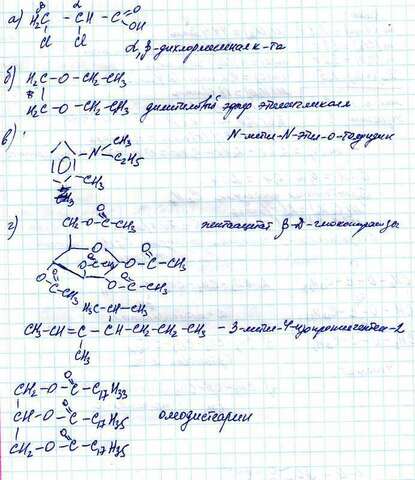 а) H₂C – CH – C =O
β α OH
Cl Cl
α,β-дихлормасляная к-та
б) H₂C – O – CH₂ – CH₃
H₂C – O – CH₂ – CH₃ диэтиловый эфир этиленгликоля
в) N-метил-N-этил-о-толуидин
– N – CH₃
C₂H₅
– CH₃
г) CH₂ – O – C – CH₃ пентаацетат β-D-глюкопиранозы
O
O – C – CH₃
O – C – CH₃
O – C – CH₃
H₃C – CH – CH₃
CH₃ – CH = C – CH – CH₂ – CH₂ – CH₃ – 3-метил-4-изопропилгептен-2
CH₃
CH₂ – O – C – C₁₇H₃₃
CH – O – C – C₁₇H₃₅ олеодистеарин
CH₂ – O – C – C₁₇H₃₅